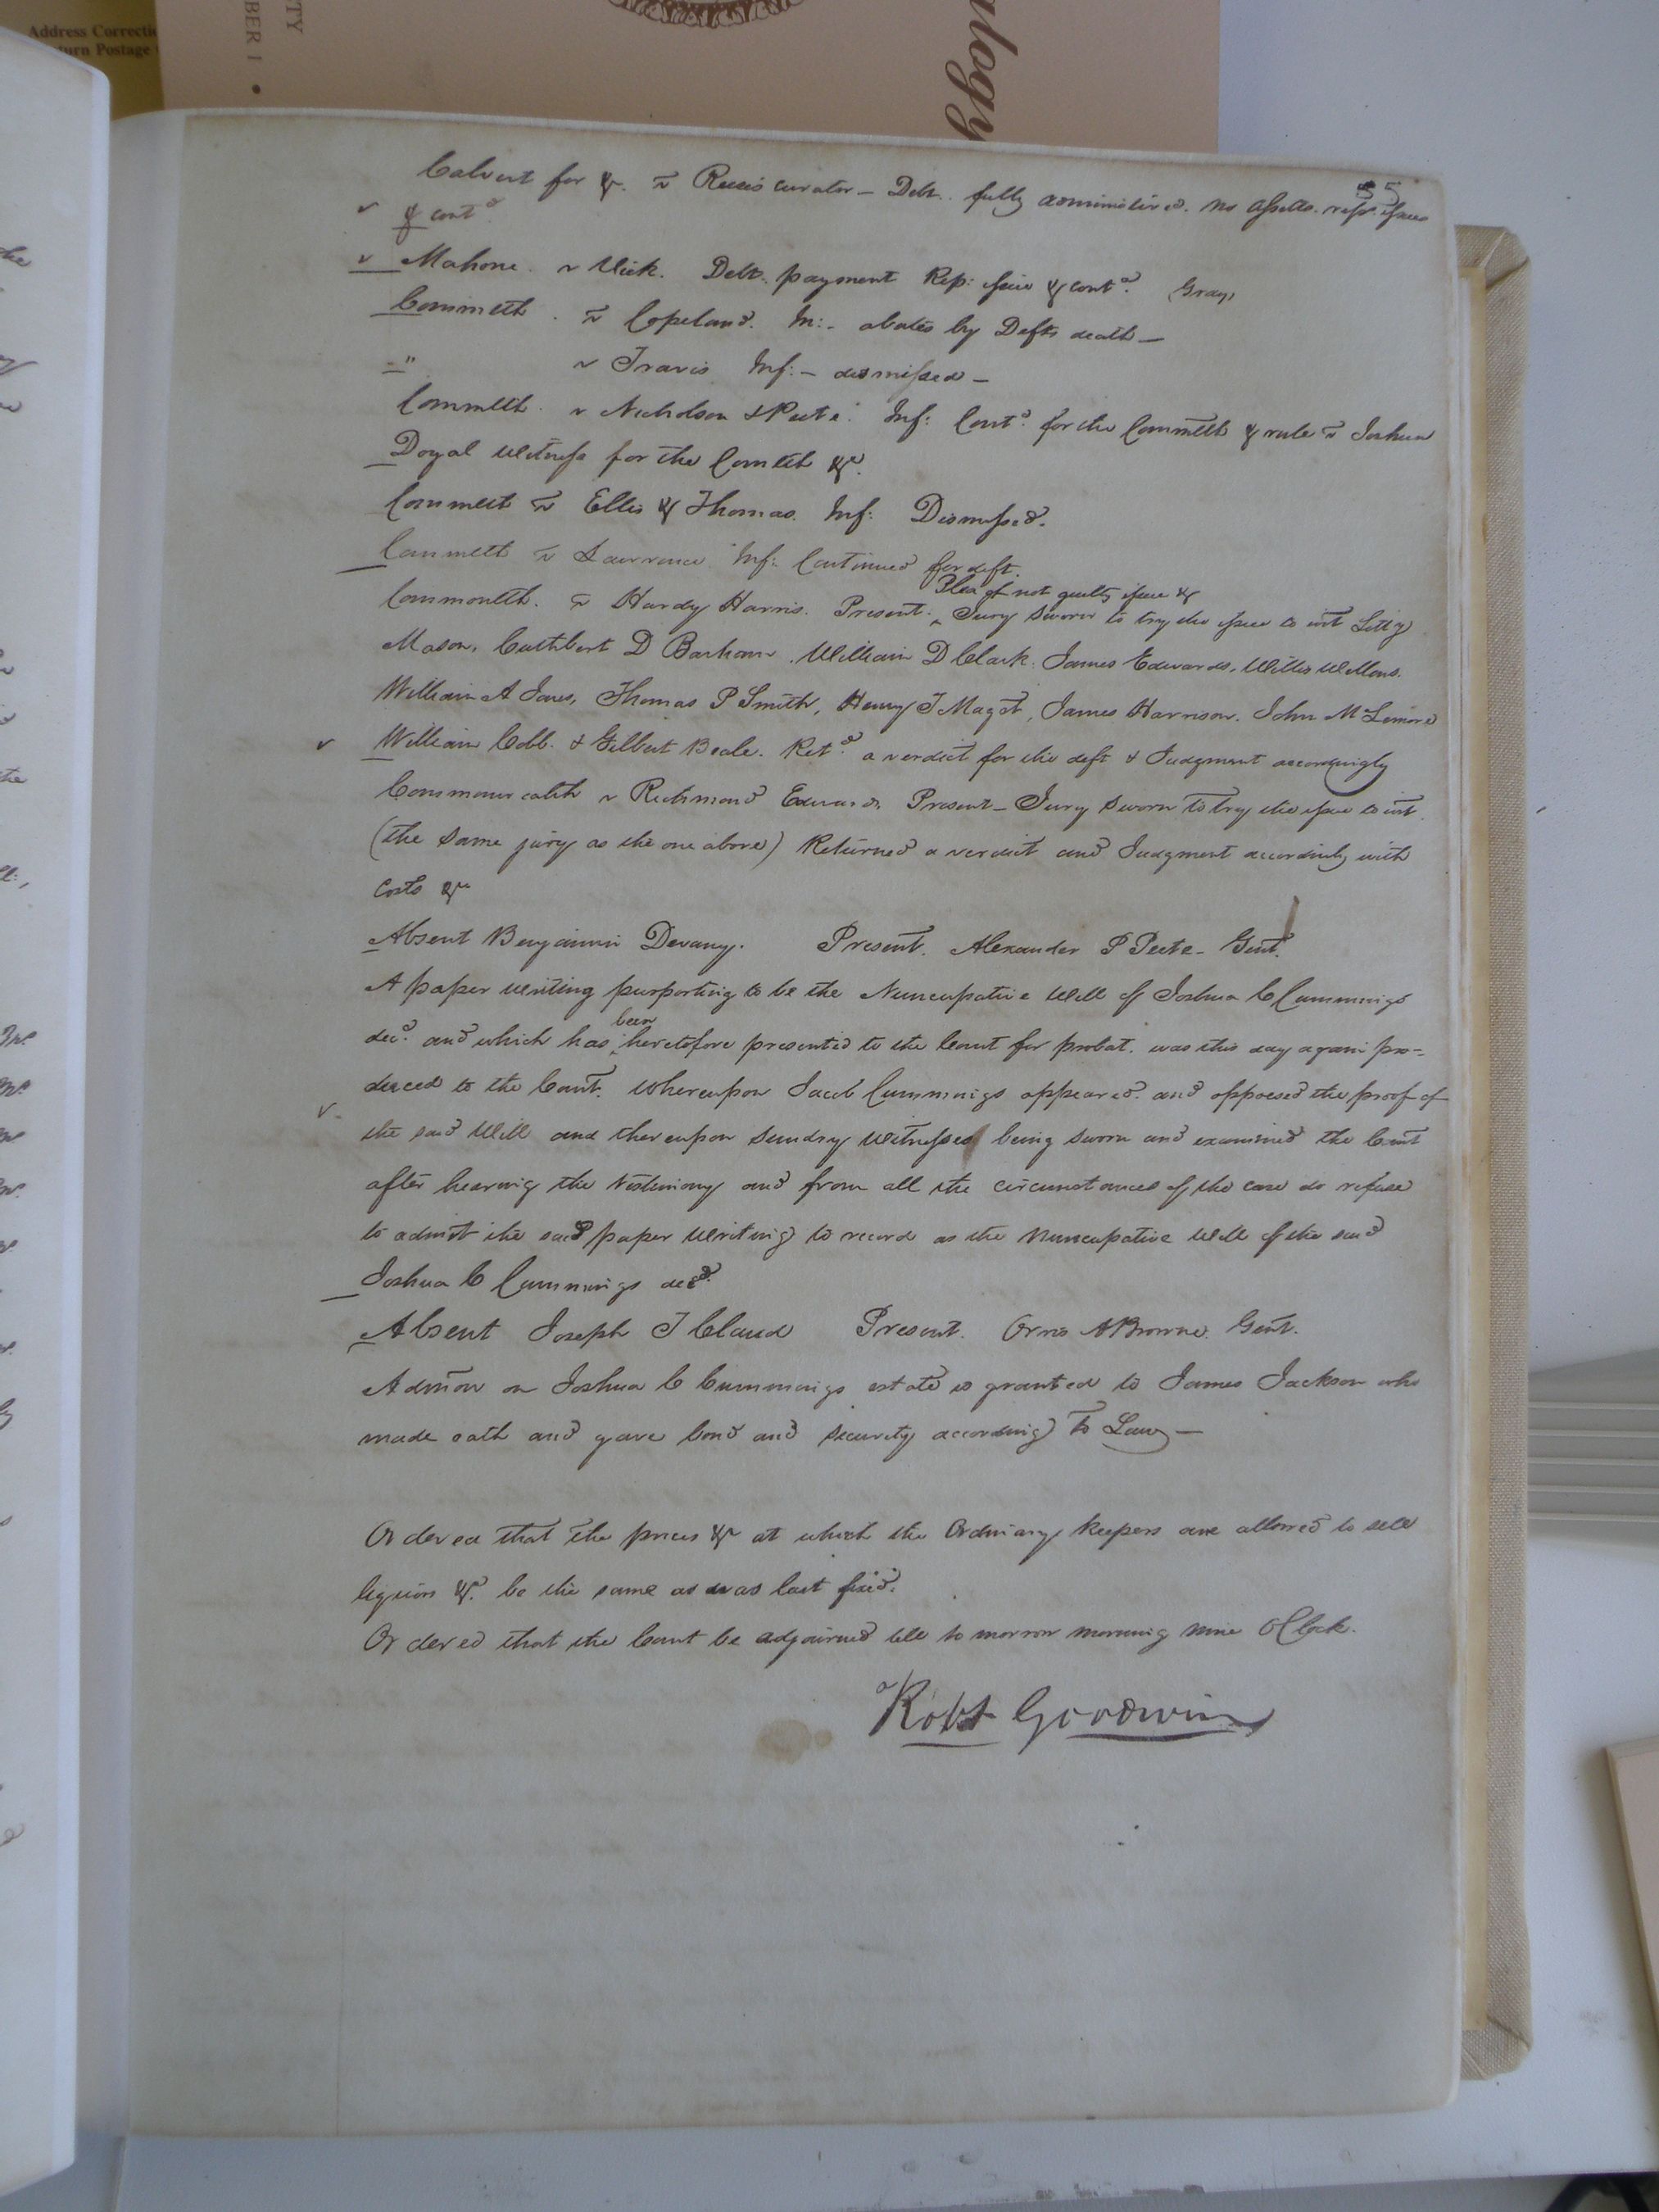 Address Correcti
turn Postage
BER 1 •
TY
ulogy
35
Calvert for &c. vs Reese's curator - Debt. fully administered. no assetts. repl. issue
& contd.
Mahone. v Vick. Debt. payment Rep: issue & contd. Gray
Commlth. vs Copeland. In: - abates by Defts death -
" v Travis Inf: - dismissed -
Commlth. v Nicholson & Peete. Inf: Contd. for the Commlth & rule vs Joshua
Doyal witness for the Comlth &c.
Commlth vs Ellis & Thomas. Inf: Dismissed.
Commlth vs Lawrence Inf: Continued for deft.
Plea of not guilty issue &
Commonlth. vs Hardy Harris. Present. ^ Jury sworn to try the issue to wit
Mason, Cuthbert D Barham, William D Clark. James Edwards, Willis Wellons.
William A Jones, Thomas P Smith, Henry J Maget, James Harrison. John McLemore
William Cobb. & Gilbert Beale. Retd. a verdict for the deft & Judgment accordingly
Commonwealth v Richmond Edwards Present - Jury sworn to try the issue to wit.
(the same jury as the one above) Returned a verdict and Judgment accordinly with
Costs &c
Absent Benjamin Devany. Present. Alexander P Peete - Gent.
A paper writing purporting to be the Nuncupative Will of Joshua C Cummings
been
decd. and which has ^ heretofore presented to the Court for probat. was this day again pro-
duced to the Court. Whereupon Jacob Cummings appeared. and opposed the proof of
the said Will and thereupon sundry witnesses being sworn and examined the Court
after hearing the testimony and from all the circumstances of the case do refuse
to admit the said paper writing to record as the nuncupative Will of the said
Joshua C Cummings decd.
Absent Joseph T Claud Present. Orris A Browne. Gent.
Admon on Joshua C Cummings estate is granted to James Jackson who
made oath and gave bond and security according to Law -
Ordered that the prices &c at which the Ordinary keepers are allowed to sell
liquors &c. be the same as was last fixed.
Ordered that the Court be adjourned till to morrow morning nine OClock.
Robt Goodwin